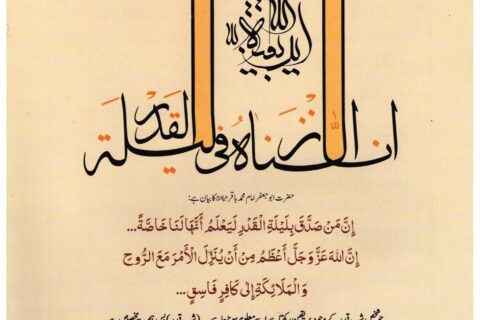 انا انزلناه فی لیلة القدر
حضرت ابو جعفر امام محمد باقر کا بیان ہے:
إِنَّ مَنْ صَدَّقَ بِلَيْلَةِ الْقَدْرِ لَيَعْلَمُ أَنَّهَا لَنَا خَاصَّةً...
إِنَّ اللهَ عَزَّ وَجَلَّ أَعْظَمُ مِنْ أَنْ يُنَزِّلَ الْأَمْرَ مَعَ الرُّوحِ
وَالْمَلَائِكَةِ إِلَى كَافِرٍ فَاسِقٍ...